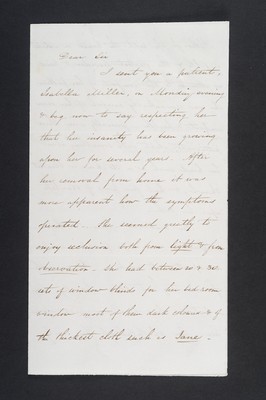 Dear Sir
I sent you a patient,
Isabella Miller, on Monday evening
& beg now to say respecting her
that her insanity has been growing
upon her for several years. After
her removal from home it was
more apparent how the symptoms
operated. She seemed greatly to
enjoy seclusion both from light & from
observation. She had between 20 & 30
sets of window blinds for her bed room
window most of them dark colours & of
the thickest cloth such as